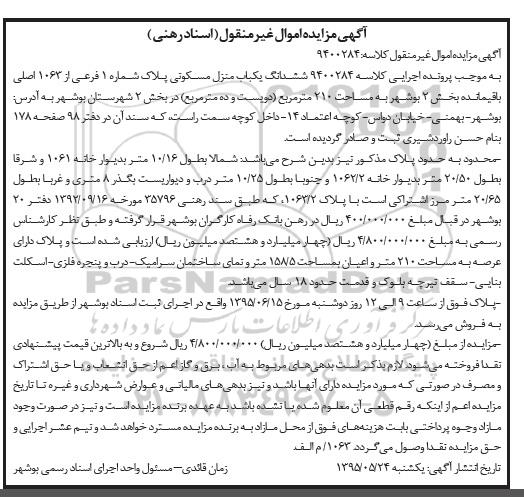 آگهی مزایده اموال غیر منقول (اسناد رهنی)
آگهی مزایده اموال غیر منقول کلاسه: ۹۴۰۰۲۸۴
به موجب پرونده اجرایی کلاسه ۹۴۰۰۲۸۴ ششدانگ یکباب منزل مسکونی پلاک شماره ۱ فرعی از ۱۰۶۳ اصلی
باقیمانده بخش ۲ بوشهر به مساحت ۲۱۰ متر مربع (دویست و ده مترمربع) در بخش ۲ شهرستان بوشهر به آدرس:
بوشهر-بهمنی-خیابان دواس-کوچه اعتماد ۱۴-داخل کوچه سمت راست، که سند آن در دفتر ۹۸ صفحه ۱۷۸
بنام حسن راوردشیری ثبت و صادر گردیده است.
-محدود به حدود پلاک مذکور نیز بدین شرح می‌باشد: شمالا بطول ۱۰/۱۶ متر بدیوار خانه ۱۰۶۱ و شرقا
بطول ۲۰/۵۰ متر بدیوار خانه ۱۰۶۲/۲ و جنوبا بطول ۱۰/۲۵ متر درب و دیواریست بگذر ۸ متری و غربا بطول
۲۰/۶۵ متر مرز اشتراکی است با پلاک ۱۰۶۳/۲، که طبق سند رهنی ۳۵۷۹۶ مورخه ۱۳۹۲/۰۹/۱۶ دفتر ۲۰
بوشهر در قبال مبلغ ۴۰۰/۰۰۰/۰۰۰ ریال در رهن بانک رفاه کارگران بوشهر قرار گرفته و طبق نظر کارشناس
رسمی به مبلغ ۴/۸۰۰/۰۰۰/۰۰۰ ریال (چهار میلیارد و هشتصد میلیون ریال) ارزیابی شده است و پلاک دارای
عرصه به مساحت ۲۱۰ متر و اعیان بمساحت ۱۵۸/۵ متر و نمای ساختمان سرامیک-درب و پنجره فلزی-اسکلت
بنایی- سقف تیرچه بلوک و قدمت حدود ۱۸ سال می‌باشد.
-پلاک فوق از ساعت ۹ الی ۱۲ روز دوشنبه مورخ ۱۳۹۵/۰۶/۱۵ واقع در اجرای ثبت اسناد بوشهر از طریق مزایده
به فروش می‌رسد.
-مزایده از مبلغ (چهار میلیارد و هشتصد میلیون ریال) ۴/۸۰۰/۰۰۰/۰۰۰ ریال شروع و به بالاترین قیمت پیشنهادی
نقدا فروخته می‌شود لازم بذکر است بدهی‌های مربوط به آب، برق و گاز اعم از حق انشعاب و یا حق اشتراک
و مصرف در صورتی که مورد مزایده دارای آنها باشد و نیز بدهی‌های مالیاتی و عوارض شهرداری و غیره تا تاریخ
مزایده اعم از اینکه رقم قطعی آن معلوم شده یا نشده باشد به عهده برنده مزایده است و نیز در صورت وجود
مازاد وجوه پرداختی بابت هزینه‌های فوق از محل مازاد به برنده مزایده مسترد خواهد شد و نیم عشر اجرایی و
حق مزایده نقدا وصول می‌گردد. ۱۰۶۳/ م الف.
تاریخ انتشار آگهی: یکشنبه ۱۳۹۵/۰۵/۲۴
زمان قائدی- مسئول واحد اجرای اسناد رسمی بوشهر
ParsNamadData
۰۲۱-۸۸۳۴۹۶۷۰-۵